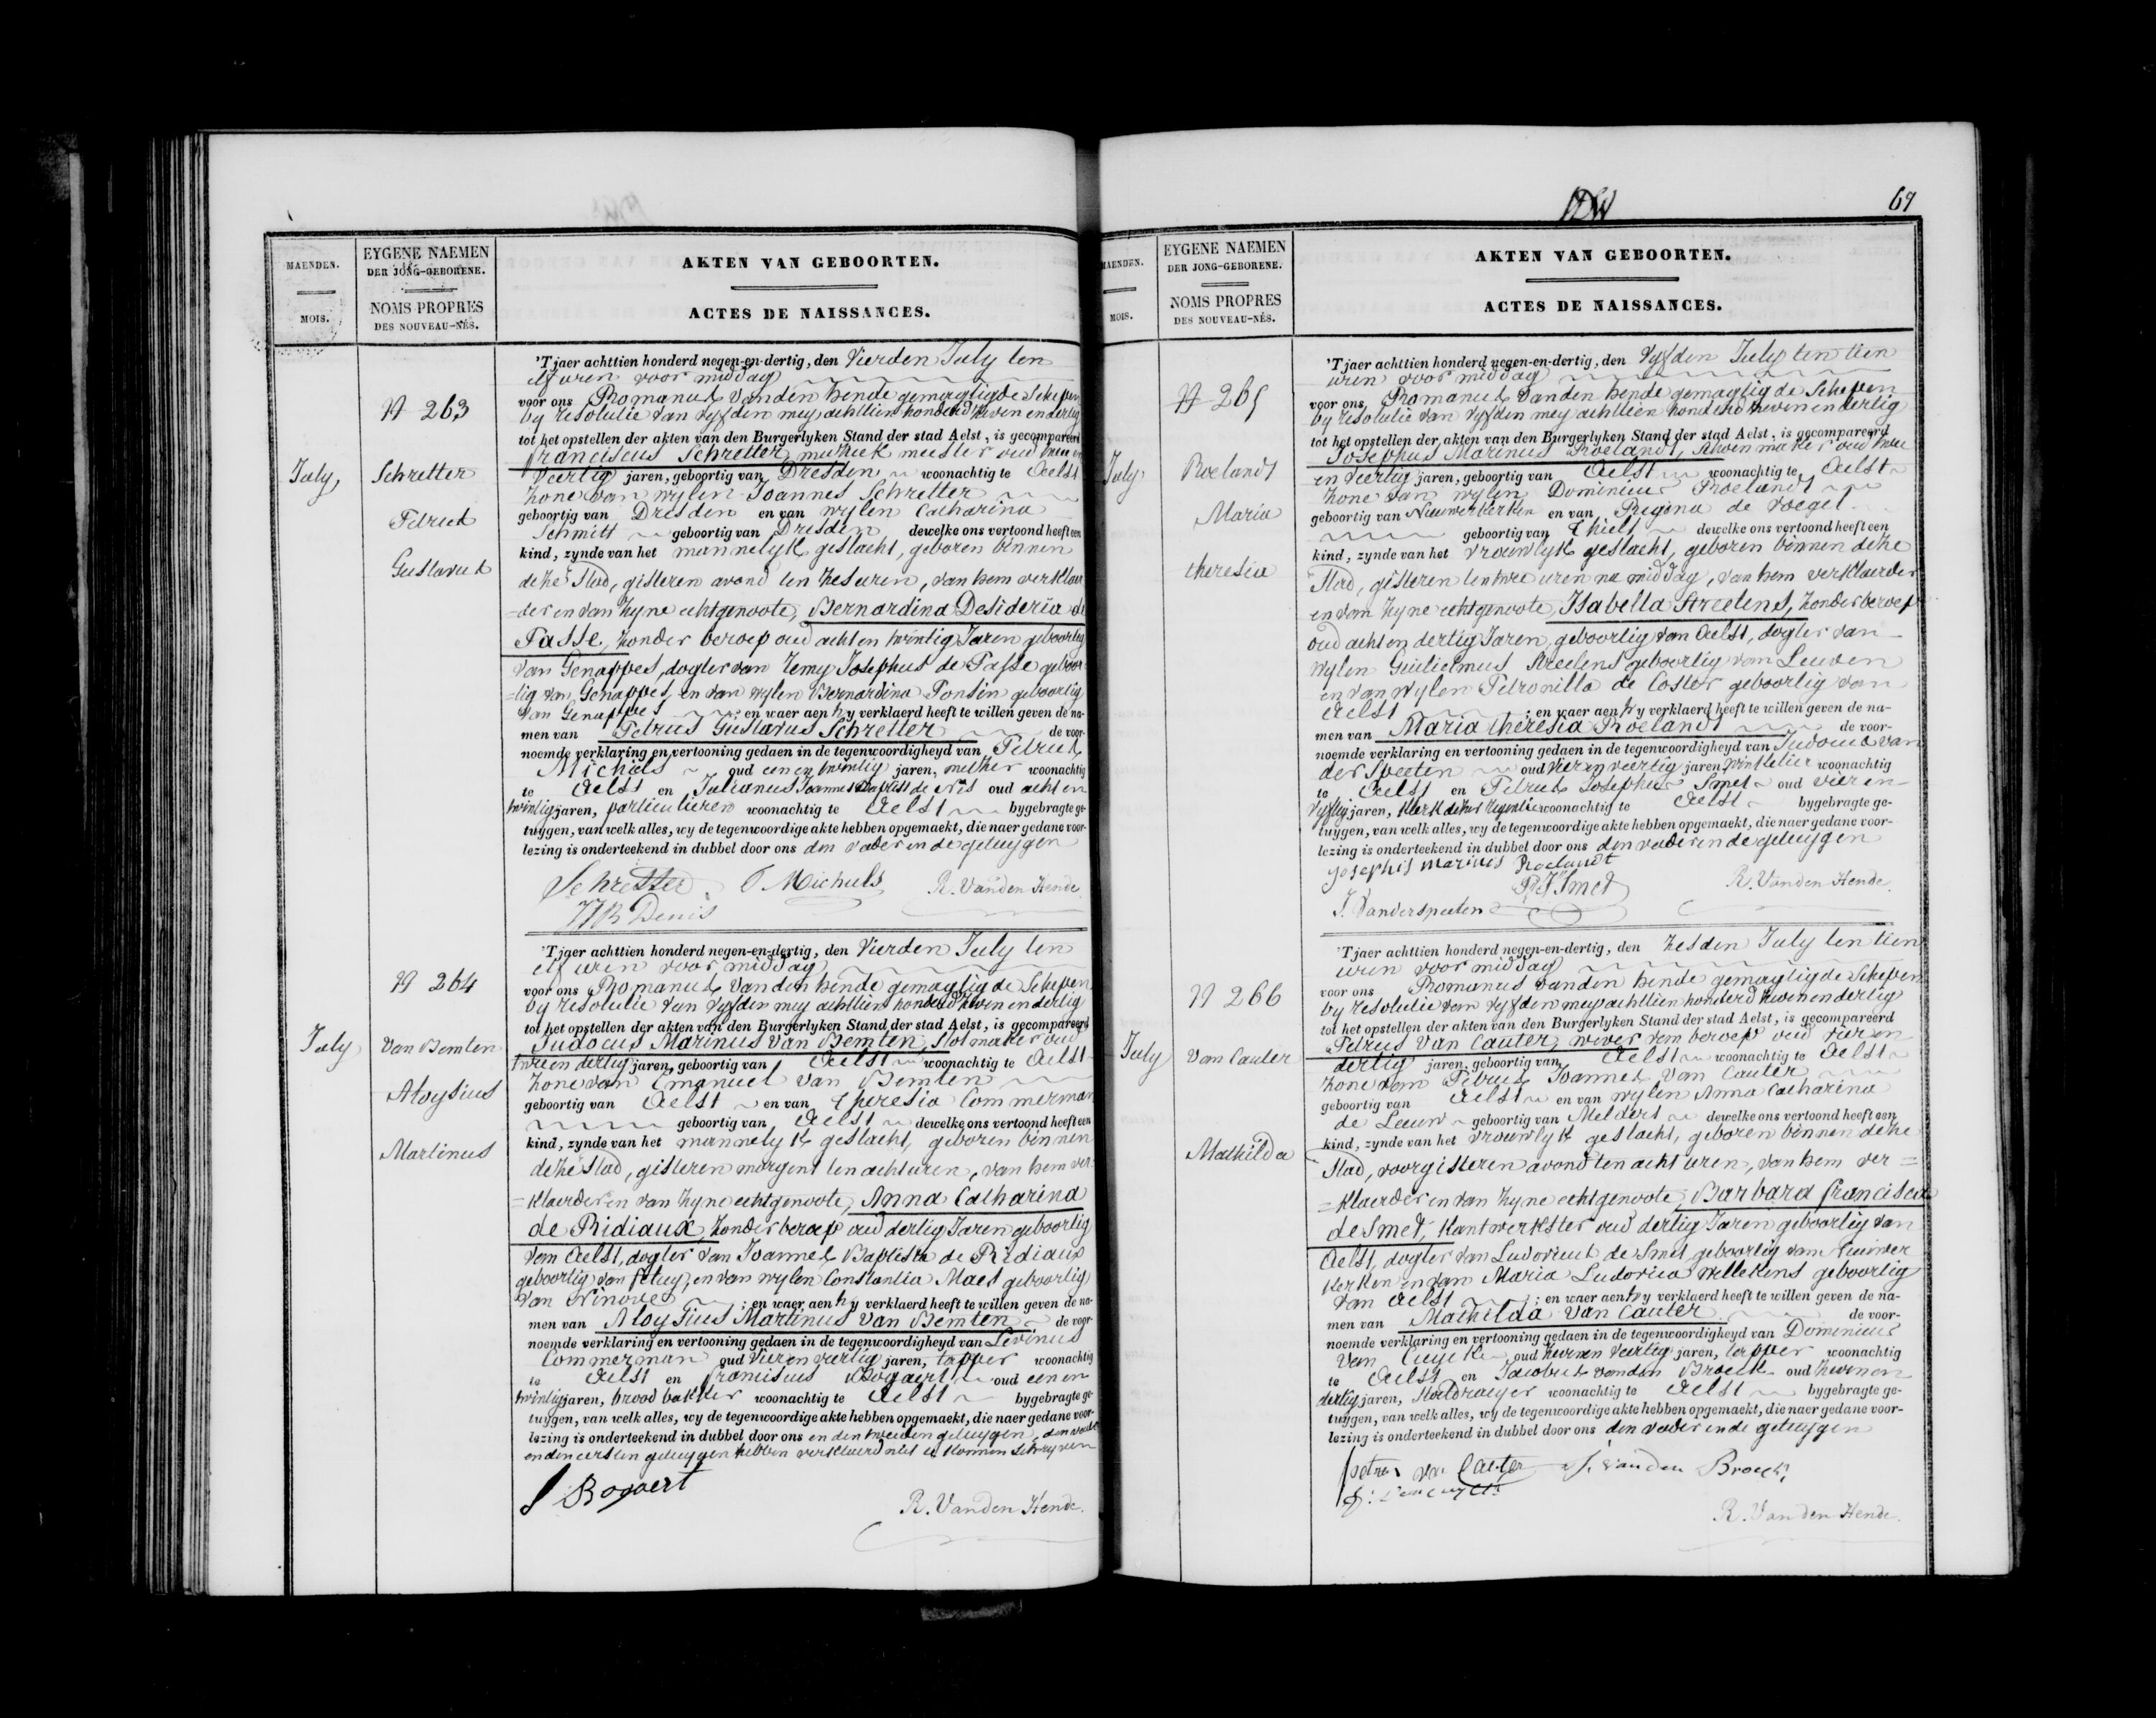 MAENDEN.
MOIS.
EYGENE NAEMEN
DER JONG-GEBORENE.
NOMS PROPRES
DES NOUVEAU-NÉS.
AKTEN VAN GEBOORTEN.
ACTES DE NAISSANCES.
N 263
July,
Schretter
Petrus
Gustavus
'T jaer achttien honderd negen-en-dertig, den Vierden July ten
elf uren voor middag
voor ons Romanus Vanden hende gemagtigde Schepen
by resolutie van vyfden mey achttien honderd zeven en dertig
tot het opstellen der akten van den Burgerlyken Stand der stad Aelst, is gecompareerd
franciscus Schretter, muziek meester oud
Veertig jaren, geboortig van Dresden woonachtig te Aelst
zone van wylen Joannes Schretter
geboortig van Dresden en van wylen Catharina
Schmitt geboortig van Dresden dewelke ons vertoond heeft een
kind, zynde van het mannelyk geslacht, geboren binnen
deze Stad, gisteren avond ten zes uren, van hem verklaer
=der en van zyne echtgenoote, Bernardina Desideria de
Passe, zonder beroep oud acht en twintig Jaren geboortig
van Genappes, dogter van Remy Josephus de Passe geboor-
=tig van Genappes, en van wylen Bernardina Ponsin geboortig
van Genappes ; en waer aen hy verklaerd heeft te willen geven de na-
men van Petrus Gustavus Schretter de voor-
noemde verklaring en vertooning gedaen in de tegenwoordigheyd van Petrus
Michiels oud een en twintig jaren, woonachtig
te Aelst en Julianus Joannes Baptist de Nis oud acht en
twintig jaren, particulieren woonachtig te Aelst bygebragte ge-
tuygen, van welk alles, wy de tegenwoordige akte hebben opgemaekt, die naer gedane voor-
lezing is onderteekend in dubbel door ons den vader en de getuygen
Schretter. Michiels R. Vanden Hende
JJB Denis
N 264
July
Van Bemten
Aloysius
Martinus
'T jaer achttien honderd negen-en-dertig, den Vierden July ten
elf uren voor middag
voor ons Romanus Vanden hende gemagtigde Schepen
by resolutie van vyfden mey achttien honderd zeven en dertig
tot het opstellen der akten van den Burgerlyken Stand der stad Aelst, is gecompareerd
Judocus Marinus Van Bemten, Slotmaker oud
twee en dertig jaren, geboortig van Aelst woonachtig te Aelst
zone van Emanuel Van Bemten
geboortig van Aelst en van Theresia Commerman
geboortig van Aelst dewelke ons vertoond heeft een
kind, zynde van het mannelyk geslacht, geboren binnen
deze Stad, gisteren morgent ten acht uren, van hem ver-
=klaerder en van zyne echtgenoote, Anna Catharina
de Ridiaux, zonder beroep oud dertig Jaren geboortig
van Aelst, dogter van Joannes Baptista de Ridiaux
geboortig van Petuy, en van wylen Constantia Maes geboortig
van Ninove ; en waer aen hy verklaerd heeft te willen geven de na-
men van Aloysius Martinus Van Bemten de voor-
noemde verklaring en vertooning gedaen in de tegenwoordigheyd van Levinus
Commerman oud Vier en veertig jaren, tapper woonachtig
te Aelst en franciscus Bogaert oud een en
twintig jaren, brood bakker woonachtig te Aelst bygebragte ge-
tuygen, van welk alles, wy de tegenwoordige akte hebben opgemaekt, die naer gedane voor-
lezing is onderteekend in dubbel door ons en den tweeden getuygen, den vader
en den eersten getuygen hebben verklaerd niet te konnen schryven
Bogaert
R. Vanden Hende.
69
MAENDEN.
MOIS.
EYGENE NAEMEN
DER JONG-GEBORENE.
NOMS PROPRES
DES NOUVEAU-NÉS.
AKTEN VAN GEBOORTEN.
ACTES DE NAISSANCES.
N 265
July
Roelandt
Maria
theresia
'T jaer achttien honderd negen-en-dertig, den Vyfden July ten tien
uren voor middag
voor ons Romanus Vanden hende gemagtigde Schepen
by resolutie van vyfden mey achttien honderd zeven en dertig
tot het opstellen der akten van den Burgerlyken Stand der stad Aelst, is gecompareerd
Josephus Marinus Roelandt, Schoenmaker oud twee
en veertig jaren, geboortig van Aelst woonachtig te Aelst
zone van wylen Dominicus Roelandt
geboortig van Nieuwerkerken en van Regina de Voegel
geboortig van Thielt dewelke ons vertoond heeft een
kind, zynde van het vrouwlyk geslacht, geboren binnen deze
Stad, gisteren ten twee uren na middag, van hem verklaerder
en van zyne echtgenoote, Isabella Streetens, zonder beroep
oud acht en dertig Jaren, geboortig van Aelst, dogter van
wylen Guilielmus Streetens geboortig van Leuven
en van wylen Petronilla de Coster geboortig van
Aelst ; en waer aen hy verklaerd heeft te willen geven de na-
men van Maria theresia Roelandt de voor-
noemde verklaring en vertooning gedaen in de tegenwoordigheyd van Judocus van
der Speeten oud Vier en veertig jaren winkelier woonachtig
te Aelst en Petrus Josephus Smet oud vier en
vyftig jaren, klerk woonachtig te Aelst bygebragte ge-
tuygen, van welk alles, wy de tegenwoordige akte hebben opgemaekt, die naer gedane voor-
lezing is onderteekend in dubbel door ons den vader en de getuygen
josephis marinis Roelandt
P.J. Smet R. Vanden Hende.
J. Vanderspeeten
N 266
July
Van Cauter
Mathilda
'T jaer achttien honderd negen-en-dertig, den zesden July ten tien
uren voor middag
voor ons Romanus Vanden hende gemagtigde Schepen
by resolutie van vyfden mey achttien honderd zeven en dertig
tot het opstellen der akten van den Burgerlyken Stand der stad Aelst, is gecompareerd
Petrus Van Cauter, wever van beroep oud vier en
dertig jaren, geboortig van Aelst woonachtig te Aelst
zone van Petrus Joannes Van Cauter
geboortig van Aelst en van wylen Anna Catharina
de Leeuw geboortig van Meldert dewelke ons vertoond heeft een
kind, zynde van het vrouwlyk geslacht, geboren binnen deze
Stad, voorgisteren avond ten acht uren, van hem ver=
=klaerder en van zyne echtgenoote, Barbara francisca
de Smet, kantwerkster oud dertig Jaren geboortig van
Aelst, dogter van Ludovicus de Smet geboortig van Nieuwer
kerken en van Maria Ludovica Willekens geboortig
van Aelst ; en waer aen hy verklaerd heeft te willen geven de na-
men van Mathilda Van Cauter de voor-
noemde verklaring en vertooning gedaen in de tegenwoordigheyd van Dominicus
Van Cuyck oud zeven en veertig jaren, tapper woonachtig
te Aelst en Jacobus Vanden Broeck oud zeven en
dertig jaren, Stoeldraeyer woonachtig te Aelst bygebragte ge-
tuygen, van welk alles, wy de tegenwoordige akte hebben opgemaekt, die naer gedane voor-
lezing is onderteekend in dubbel door ons den vader en de getuygen
petrus van Cauter J. Vanden Broeck
R. Vanden Hende.